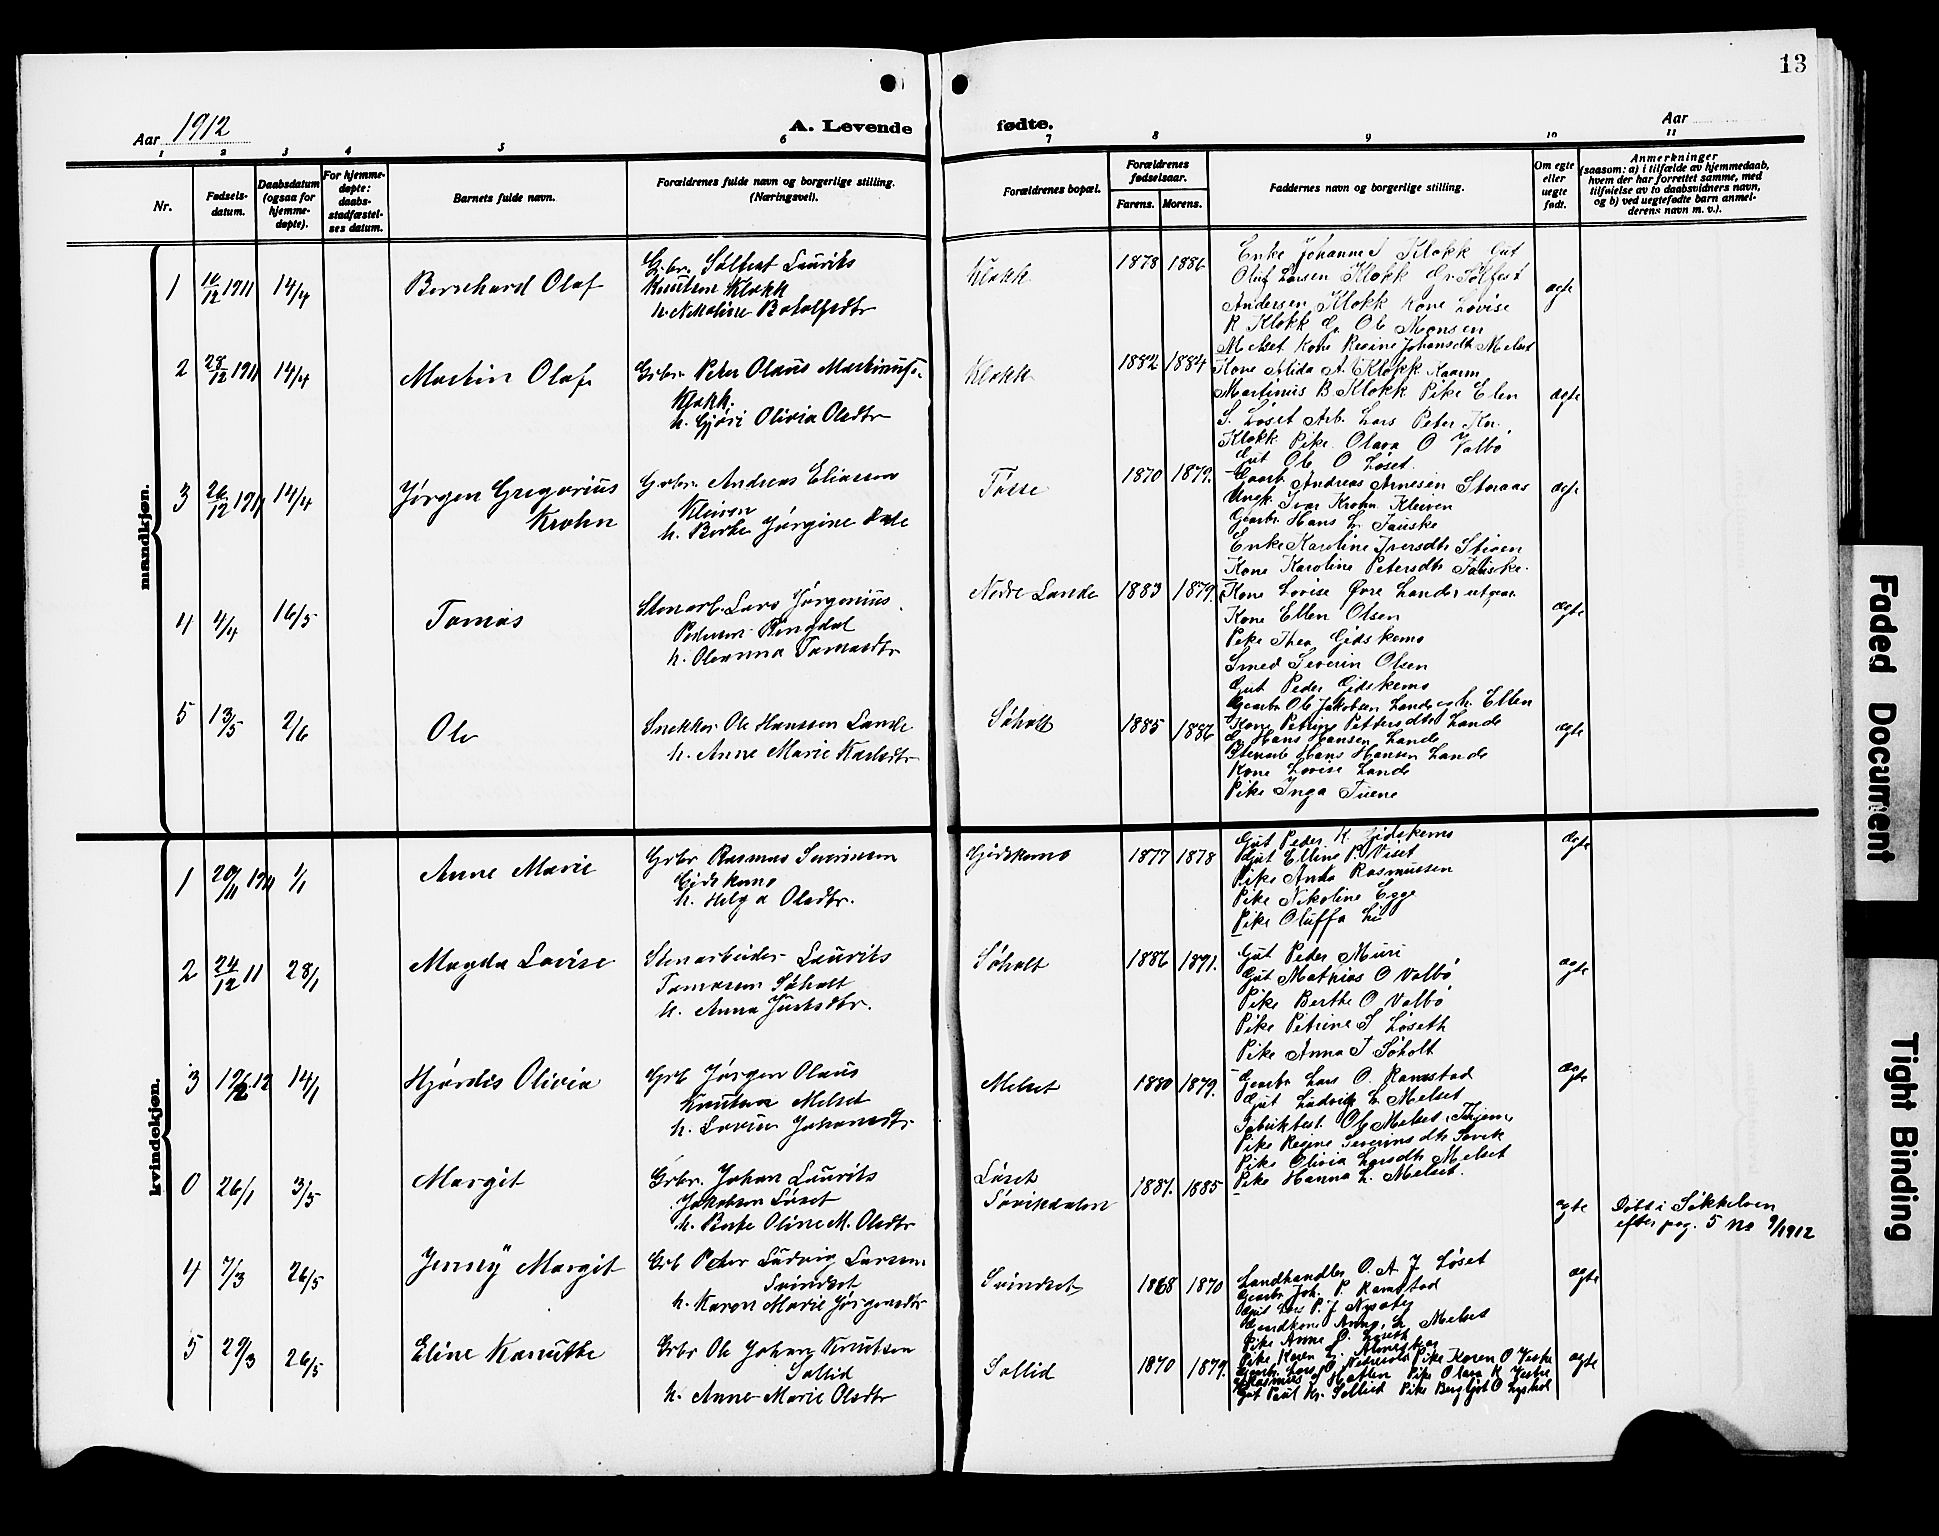 13
Aar 1912
A. Levende fødte.
Aar
1 2 3 4 5 6 7 8 9 10 11
Nr.
Fødsels-
datum.
Daabsdatum
(ogsaa for
hjemme-
døpte).
For hjemme-
døpte:
daabs-
stadfæstel-
ses datum.
Barnets fulde navn.
Forældrenes fulde navn og borgerlige stilling.
(Næringsvei).
Forældrenes bopæl.
Forældrenes
fødselsaar.
Farens. Morens.
Faddernes navn og borgerlige stilling.
Om egte
eller
uegte
født.
Anmerkninger
(saasom: a) i tilfælde av hjemmedaab,
hvem der har forrettet samme, med
tilføielse av to daabsvidners navn,
og b) ved uegtefødte barn anmel-
derens navn m. v.).
mandkjøn.
1 10/12 1911 14/4 Bernhard Olaf
Gbr. Sølfest Laurits
Knutsen Klokk
h. Nikoline Botolfsdtr
Klokk 1878 1886
Enke Johanne I Klokk Gut
Oluf Larsen Klokk Gr Sølfest
Andersen Klokk Kone Lovise
R Klokk Gr Ole Monsen
Melset Kone Regine Johansdtr Melset
ægte
2 28/12 1911 14/4 Martin Olaf
Grbr. Peter Olaus Martinuss.
Klokk.
h. Gjøri Olivia Olsdtr
Klokk 1882 1884
Kone Alida A. Klokk Kaarm
Martinus B. Klokk Pike Elen
S. Løset Arb. Lars Peter Kn.
Klokk Pike Olava O Valbø
Gut Ole O Løset.
ægte
3 26/12 1911 14/4 Jørgen Gregorius
Krohn
Grbr. Andreas Eliassen
Kleiven
h. Berte Jørgine
Tosse 1870 1879.
Gaarbr Andreas Arnesen Storaas
Ungk. Ivar Krohn Kleiven
Gaarbr Hans L. Fauske
Enke Karoline Iversdtr Stiven
Kone Karoline Petersdtr Fauske.
ægte
4 4/4 16/5 Tomas
Stenarb. Lars Jørgenius
Pedersen Ringdal
h. Oleanna Tomasdtr
Nedre Lande 1883 1879.
Kone Lovise Øvre Lande utgaar
Kone Ellen Olsen
Pike Thea Gidskemo
Smed Severin Olsen
Gut Peder Gidskemo
ægte
5 13/5 2/6 Ole
Snekker Ole Hanssen Lande
h. Anne Marie Karlsdtr
Søholt 1885 1886
Gaarbr Ole Jakobsen Lande og h. Ellen
Kone Petrine Pettersdtr Lande
Gr Hans Hansen Lande
Hans Hansen Lande
Kone Lovise Lande
Pike Inga Tuene
ægte
kvindekjøn.
1 20/11 1911 1/1 Anne Marie
Grbr Rasmus Severinsen
Gidskemo
h. Helga Olsdtr.
Gidskemo 1877 1878
Gut Peder K. Gidskemo
Gut Elline P. Viset
Pike Anna Rasmussen
Pike Nikoline Egge
Pike Oluffa Li
ægte
2 24/12 11 28/1 Magda Lovise
Stenarbeider Laurits
Tomassen Søholt
h. Anna Justsdtr.
Søholt 1886 1891.
Gut Peder Muri
Gut Mathias O Valbø
Pike Berthe O Valbø
Pike Petrine S. Løseth
Pike Anna J Søholt
ægte
3 14/1 Hjørdis Olivia
Grb Jørgen Olaus
Knutsen Melset
h. Lovise Johansdtr
Melset 1880 1879.
Gaarbr Lars O. Ramstad
Gut Ludvik L. Melset
Fabrikbest. Ole Melset, Thjem
Pike Regine Severinsdtr Søvik
Pike Olivia Larsdtr Melset
Pike Hanna L. Melset.
ægte
0 26/1 3/5 Margit
Grbr. Johan Laurits
Jakobsen Løset
h. Berte Oline M. Olsdtr
Løset
Søvikdalen 1887. 1885
ægte
Døbt i Søkkelven
efter pag. 5 no 9/1912
4 7/3 26/5 Jenny Margit
Grb Peter Ludvig Larsen
Svindset
h. Karen Marie Jørgensdtr
Svindset 1868 1870
Landhandler O. A. J Løset
Gaarbr Joh. P. Ramstad
Gut Lars P. J Nysæter
Gaardkone Anna L Melset
Pike Anne O. Løseth
Pike Karen L.
ægte
5 29/3 26/5 Eline Kanutthe
Grbr Ole Johan Knutsen
Sollid
h. Anne Marie Olsdtr
Sollid 1870 1879.
Gaarbr Lars O Pike Karen O Vestre
Rasmus J Hatlen Pike Olava K Vestre
Gut Paul Kr. Sollid Pike Bergljot O
ægte
Faded Document
Tight Binding